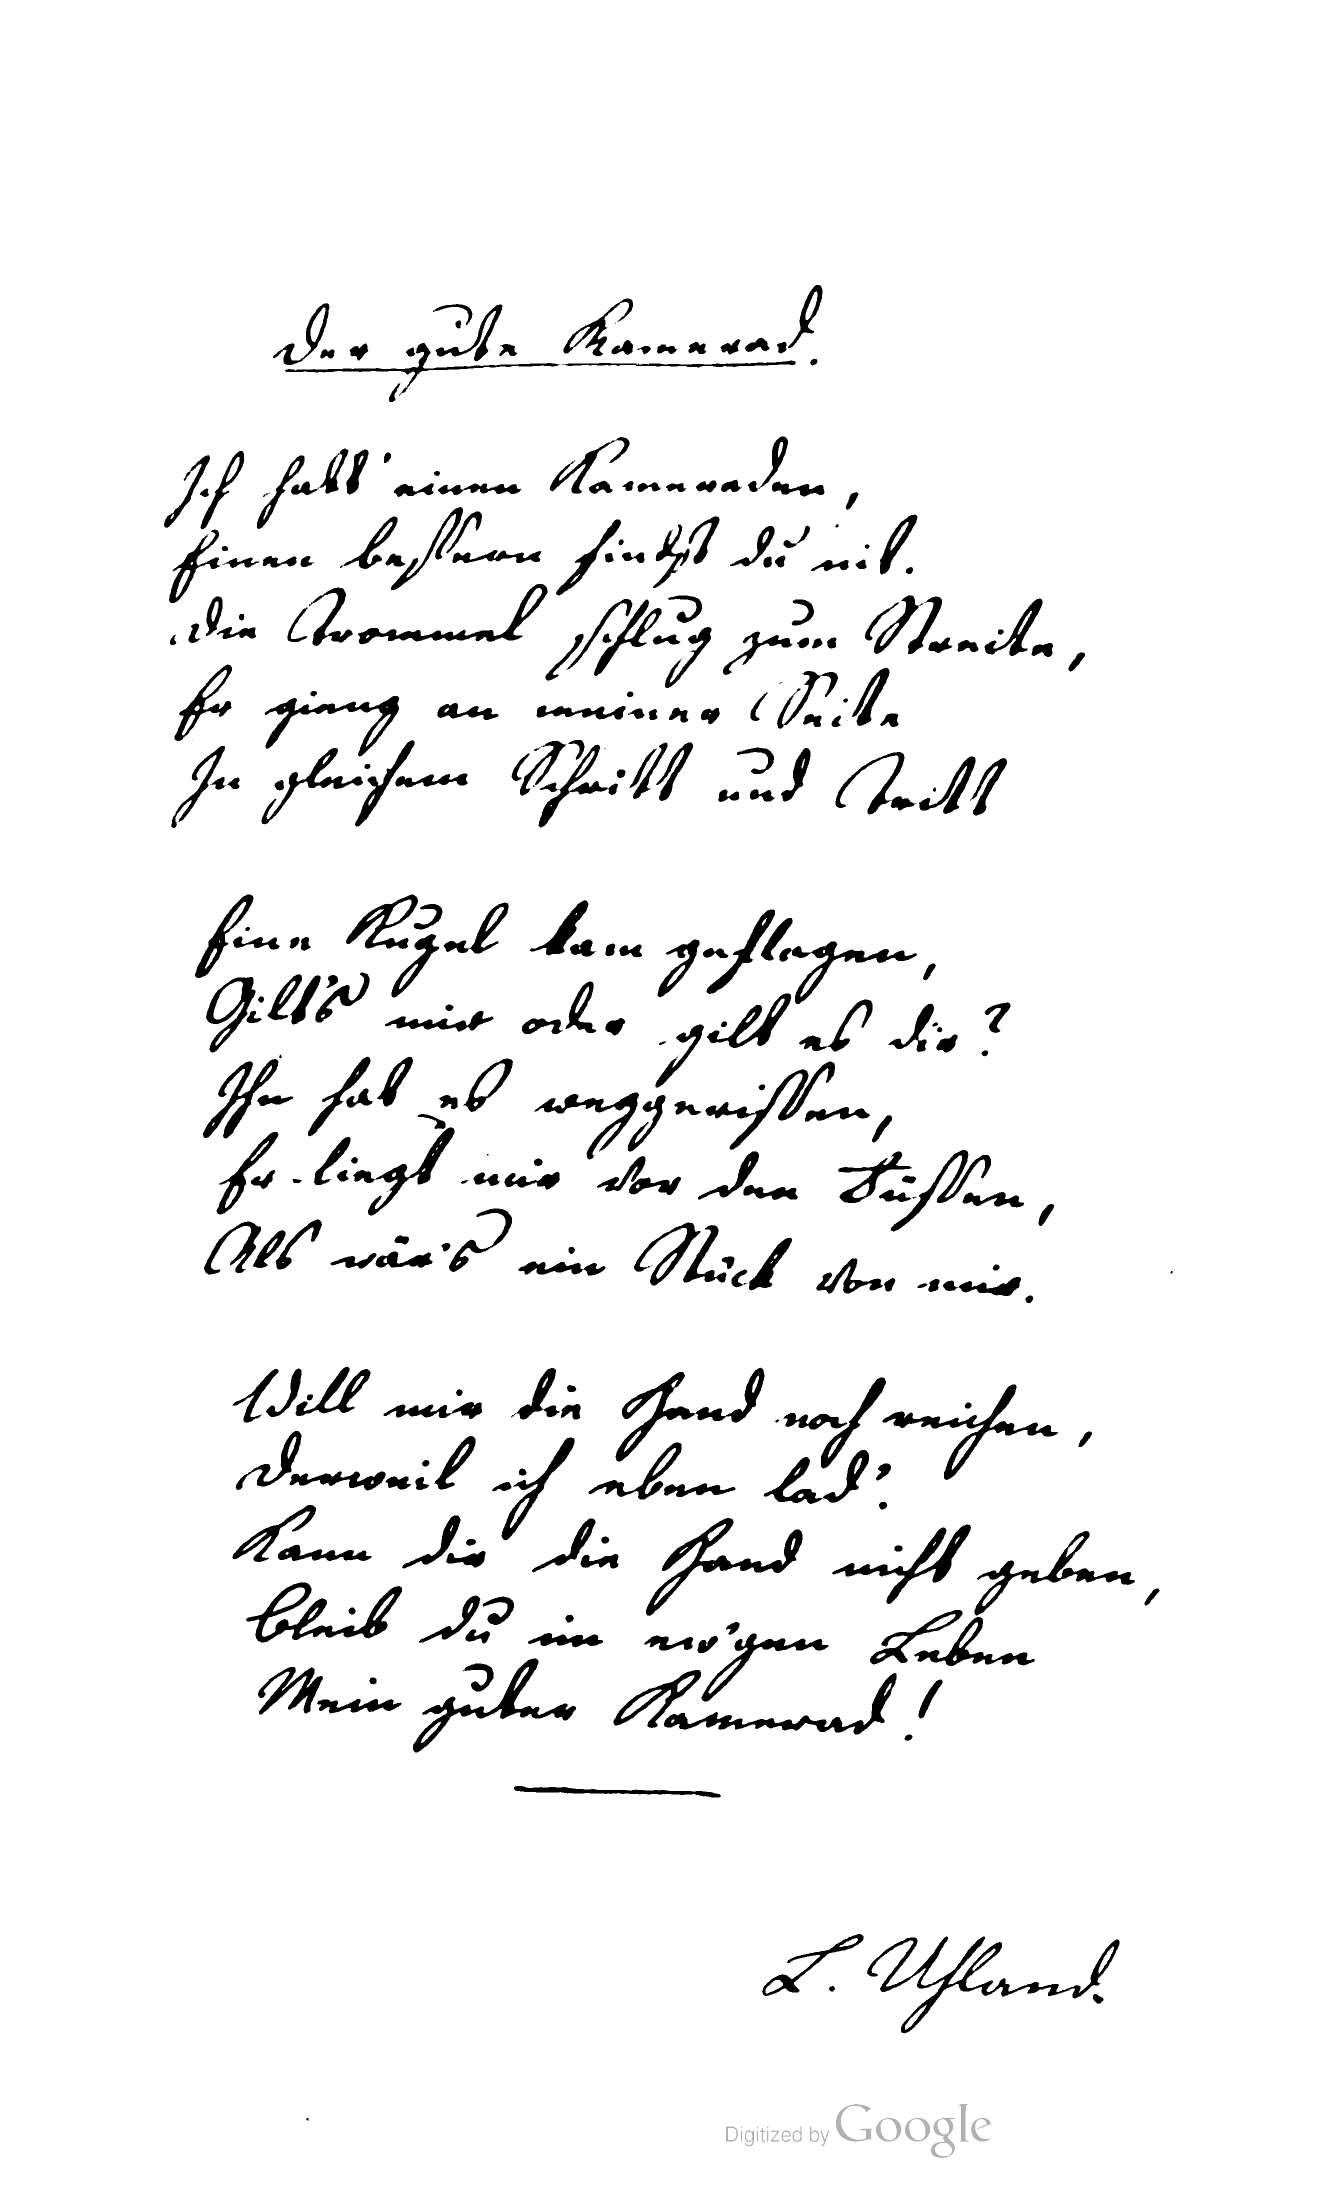 Der gute Kamerad.
Ich hatt' einen Kameraden,
Einen bessern findst du nit.
Die Trommel schlug zum Streite,
Er gieng an meiner Seite
In gleichem Schritt und Tritt
Eine Kugel kam geflogen,
Gilt's mir oder gilt es dir?
Ihn hat es weggerissen,
Er liegt mir vor den Füssen,
Als wär's ein Stück von mir.
Will mir die Hand noch reichen,
Derweil ich eben lad'.
Kann dir die Hand nicht geben,
Bleib du im ew'gen Leben
Mein guter Kamerad!
L. Uhland.
Digitized by Google